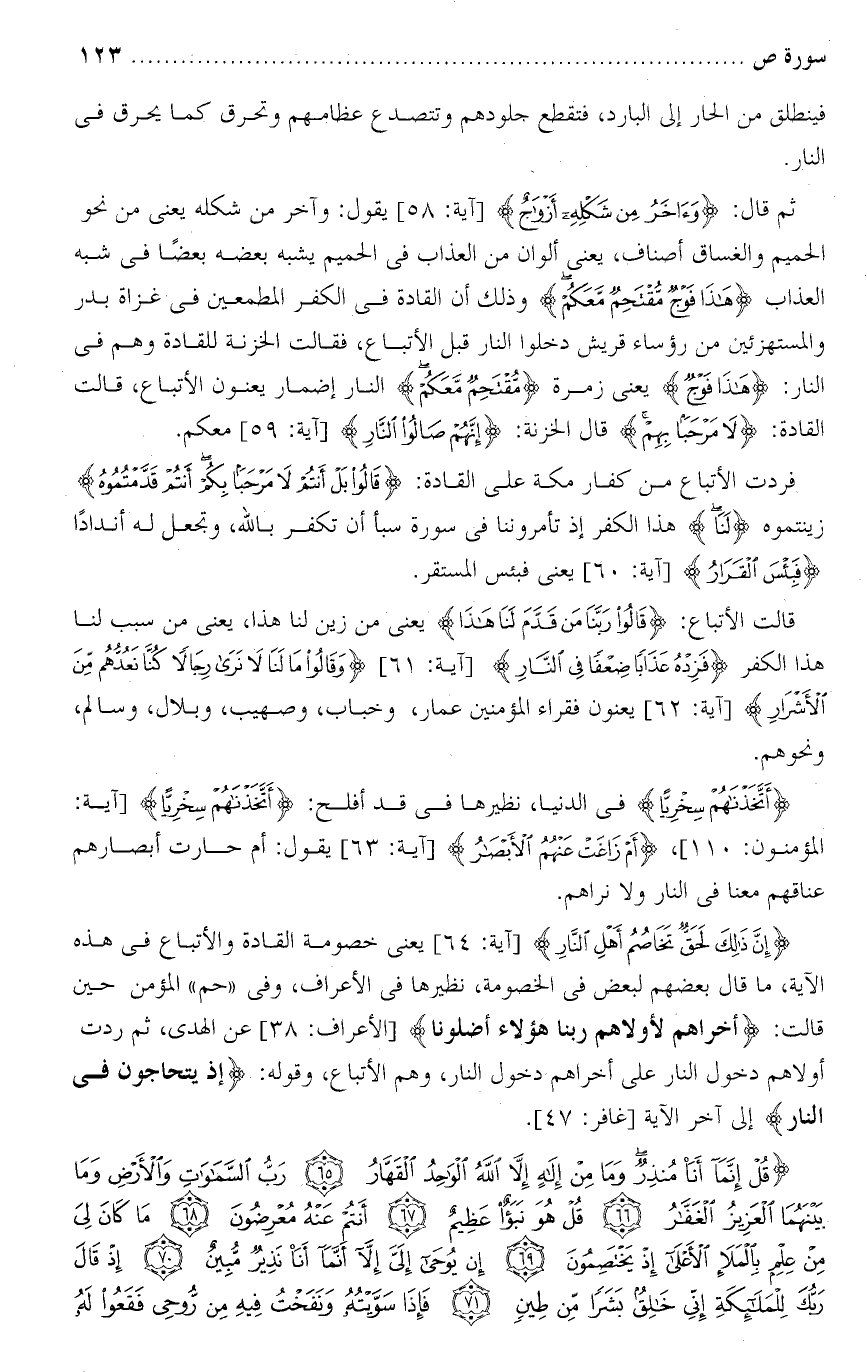 سورة ص ........................................................................ ١٢٣
فينطلق من الحار إلى البارد، فتقطع جلودهم وتتصدع عظامهم وتحرق كما يحرق فى
النار.
ثم قال: ﴿وَءَاخَرُ مِن شَكْلِهِۦٓ أَزْوَٰجٌ﴾ [آية: ٥٨] يقول: وآخر من شكله يعنى من نحو
الحميم والغساق أصناف، يعنى ألوان من العذاب فى الحميم يشبه بعضه بعضًا فى شبه
العذاب ﴿هَـٰذَا فَوْجٌ مُّقْتَحِمٌ مَّعَكُمْ ۖ﴾ وذلك أن القادة فى الكفر المطمعين فى غزاة بدر
والمستهزئين من رؤساء قريش دخلوا النار قبل الأتباع، فقالت الخزنة للقادة وهم فى
النار: ﴿هَـٰذَا فَوْجٌ﴾ يعنى زمرة ﴿مُّقْتَحِمٌ مَّعَكُمْ ۖ﴾ النار إضمار يعنون الأتباع، قالت
القادة: ﴿لَا مَرْحَبًۢا بِهِمْ ۚ﴾ قال الخزنة: ﴿إِنَّهُمْ صَالُوا۟ ٱلنَّارِ﴾ [آية: ٥٩] معكم.
فردت الأتباع من كفار مكة على القادة: ﴿قَالُوا۟ بَلْ أَنتُمْ لَا مَرْحَبًۢا بِكُمْ ۖ أَنتُمْ قَدَّمْتُمُوهُ﴾
زينتموه ﴿لَنَا ۖ﴾ هذا الكفر إذ تأمروننا فى سورة سبأ أن تكفر بالله، وتجعل له أندادًا
﴿فَبِئْسَ ٱلْقَرَارُ﴾ [آية: ٦٠] يعنى فبئس المستقر.
قالت الأتباع: ﴿قَالُوا۟ رَبَّنَا مَن قَدَّمَ لَنَا هَـٰذَا﴾ يعنى من زين لنا هذا، يعنى من سبب لنا
هذا الكفر ﴿فَزِدْهُ عَذَابًا ضِعْفًا فِى ٱلنَّارِ﴾ [آية: ٦١] ﴿وَقَالُوا۟ مَا لَنَا لَا نَرَىٰ رِجَالًا كُنَّا نَعُدُّهُم مِّنَ
ٱلْأَشْرَارِ﴾ [آية: ٦٢] يعنون فقراء المؤمنين عمار، وخباب، وصهيب، وبلال، وسالم،
ونحوهم.
﴿أَتَّخَذْنَـٰهُمْ سِخْرِيًّا﴾ فى الدنيا، نظيرها فى قد أفلح: ﴿أَتَّخَذْنَـٰهُمْ سِخْرِيًّا﴾ [آية:
المؤمنون: ١١٠]، ﴿أَمْ زَاغَتْ عَنْهُمُ ٱلْأَبْصَـٰرُ﴾ [آية: ٦٣] يقول: أم حارت أبصارهم
عناقهم معنا فى النار ولا نراهم.
﴿إِنَّ ذَٰلِكَ لَحَقٌّ تَخَاصُمُ أَهْلِ ٱلنَّارِ﴾ [آية: ٦٤] يعنى خصومة القادة والأتباع فى هذه
الآية، ما قال بعضهم لبعض فى الخصومة، نظيرها فى الأعراف، وفى «حم» المؤمن حين
قالت: ﴿أخراهم لأولاهم ربنا هؤلاء أضلونا﴾ [الأعراف: ٣٨] عن الهدى، ثم ردت
أولاهم دخول النار على أخراهم دخول النار، وهم الأتباع، وقوله: ﴿إذ يتحاجون فى
النار﴾ إلى آخر الآية [غافر: ٤٧].
﴿قُلْ إِنَّمَآ أَنَا۠ مُنذِرٌ ۖ وَمَا مِنْ إِلَـٰهٍ إِلَّا ٱللَّهُ ٱلْوَٰحِدُ ٱلْقَهَّارُ ٦٥ رَبُّ ٱلسَّمَـٰوَٰتِ وَٱلْأَرْضِ وَمَا
بَيْنَهُمَا ٱلْعَزِيزُ ٱلْغَفَّـٰرُ ٦٦ قُلْ هُوَ نَبَؤٌا۟ عَظِيمٌ ٦٧ أَنتُمْ عَنْهُ مُعْرِضُونَ ٦٨ مَا كَانَ لِىَ
مِنْ عِلْمٍۭ بِٱلْمَلَإِ ٱلْأَعْلَىٰٓ إِذْ يَخْتَصِمُونَ ٦٩ إِن يُوحَىٰٓ إِلَىَّ إِلَّآ أَنَّمَآ أَنَا۠ نَذِيرٌ مُّبِينٌ ٧٠ إِذْ قَالَ
رَبُّكَ لِلْمَلَـٰٓئِكَةِ إِنِّى خَـٰلِقٌۢ بَشَرًا مِّن طِينٍ ٧١ فَإِذَا سَوَّيْتُهُۥ وَنَفَخْتُ فِيهِ مِن رُّوحِى فَقَعُوا۟ لَهُۥ